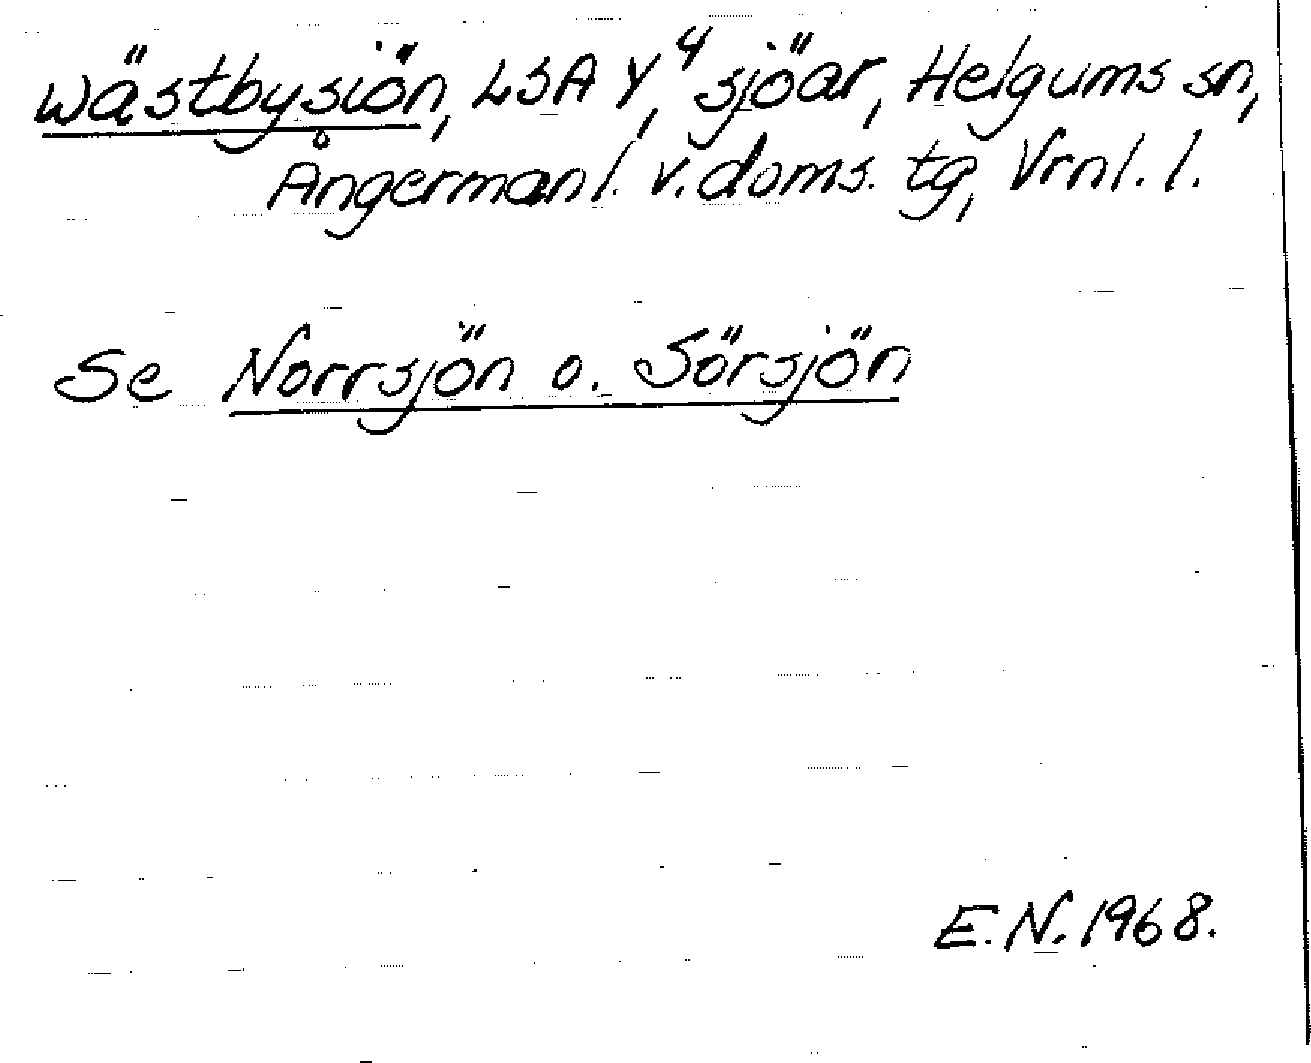 Wästbysiön, LSA Y⁴, sjöar, Helgums sn,
Ångermanl. v. doms. tg, Vrnl. l.
Se Norrsjön o. Sörsjön
E.N. 1968.